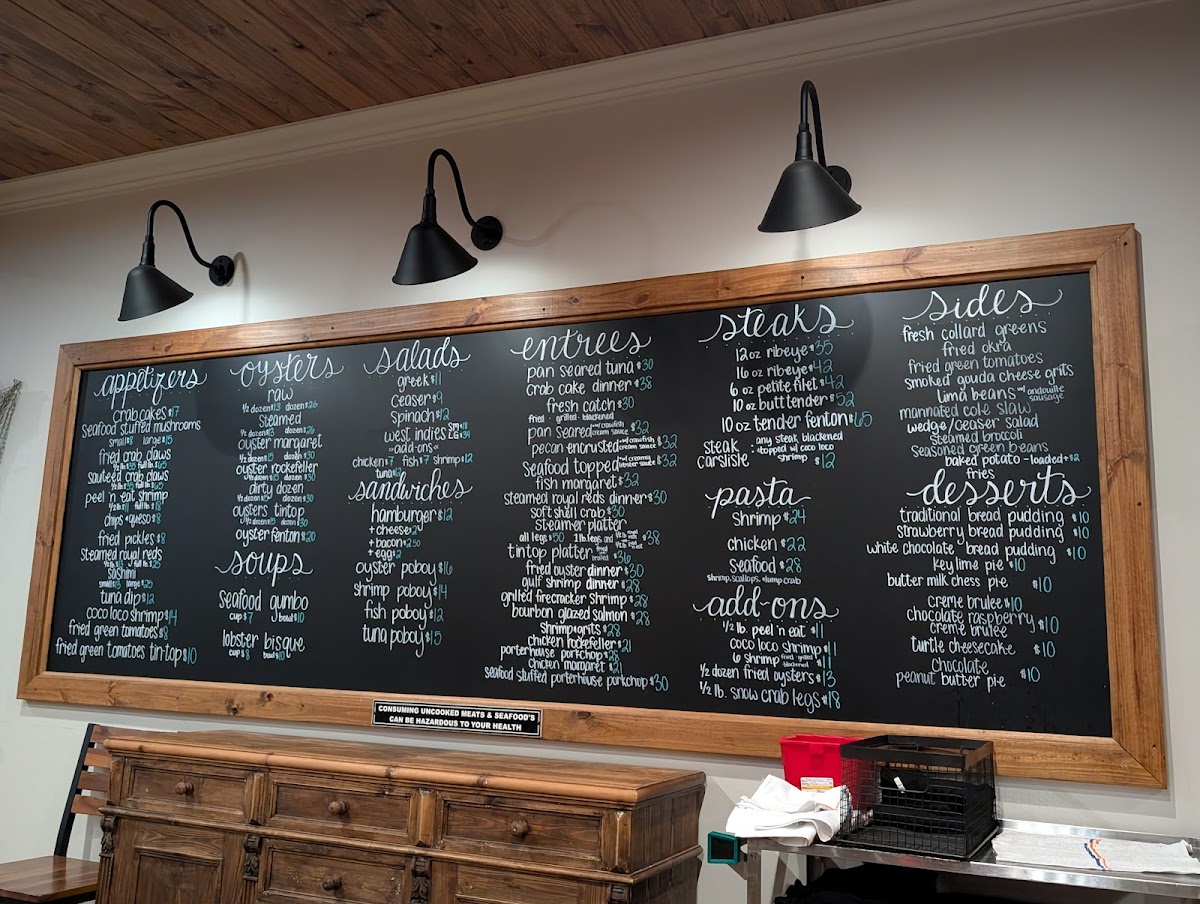 appetizers
crab cakes $17
seafood stuffed mushrooms
small $8 large $15
fried crab claws
1/2 lb. $35 full lb. $65
sauteed crab claws
1/2 lb. $35 full lb. $65
peel 'n eat shrimp
1/2 lb. $11 full lb. $18
chips + queso $8
fried pickles $8
steamed royal reds
1/2 lb. $13 full lb. $25
sashimi
small $13 large $25
tuna dip $12
coco loco shrimp $14
fried green tomatoes $8
fried green tomatoes tin-top $10
oysters
raw
1/2 dozen $13 dozen $26
steamed
1/2 dozen $13 dozen $26
oyster margaret
1/2 dozen $15 dozen $30
oyster rockefeller
1/2 dozen $15 dozen $30
dirty dozen
1/2 dozen dozen
oysters tintop
1/2 dozen $15 dozen $30
oyster fenton $20
soups
seafood gumbo
cup $7 bowl $10
lobster bisque
cup $8 bowl $10
salads
greek $11
ceaser $9
spinach $12
west indies SM $18
LG $34
~add-ons~
chicken $7 fish $7 shrimp $12
tuna $12
sandwiches
hamburger $12
+ cheese $2
+ bacon $2.50
+ egg $2
oyster poboy $16
shrimp poboy $14
fish poboy $12
tuna poboy $15
entrees
pan seared tuna $30
crab cake dinner $38
fresh catch $30
fried · grilled · blackened
pan seared w/ crawfish cream sauce $32
pecan encrusted w/ crawfish cream sauce $32
seafood topped w/ creamy lemon sauce $32
fish margaret $32
steamed royal reds dinner $30
softshell crab $30
steamer platter
all legs $50 1 lb legs and $38
tintop platter $36
fried oyster dinner $30
gulf shrimp dinner $28
grilled firecracker shrimp $28
bourbon glazed salmon $28
shrimp + grits $28
chicken rockefeller $21
porterhouse porkchop $25
chicken margaret $21
seafood stuffed porterhouse porkchop $30
steaks
12 oz ribeye $35
16 oz ribeye $42
6 oz petite filet $42
10 oz butt tender $52
10 oz tender fenton $65
steak carslisle : any steak blackened
+ topped w/ coco loco
shrimp $12
pasta
shrimp $24
chicken $22
seafood $28
shrimp, scallops, + lump crab
add-ons
1/2 lb. peel n eat $11
coco loco shrimp $11
6 shrimp fried grilled blackened $11
1/2 dozen fried oysters $13
1/2 lb. snow crab legs $18
sides
fresh collard greens
fried okra
fried green tomatoes
smoked gouda cheese grits
lima beans w/ andouille sausage
marinated cole slaw
wedge/ceaser salad
steamed broccoli
seasoned green beans
baked potato -loaded + $2
fries
desserts
traditional bread pudding $10
strawberry bread pudding $10
white chocolate bread pudding $10
key lime pie $10
butter milk chess pie $10
creme brulee $10
chocolate raspberry
creme brulee $10
turtle cheesecake $10
chocolate
peanut butter pie $10
CONSUMING UNCOOKED MEATS & SEAFOOD'S
CAN BE HAZARDOUS TO YOUR HEALTH